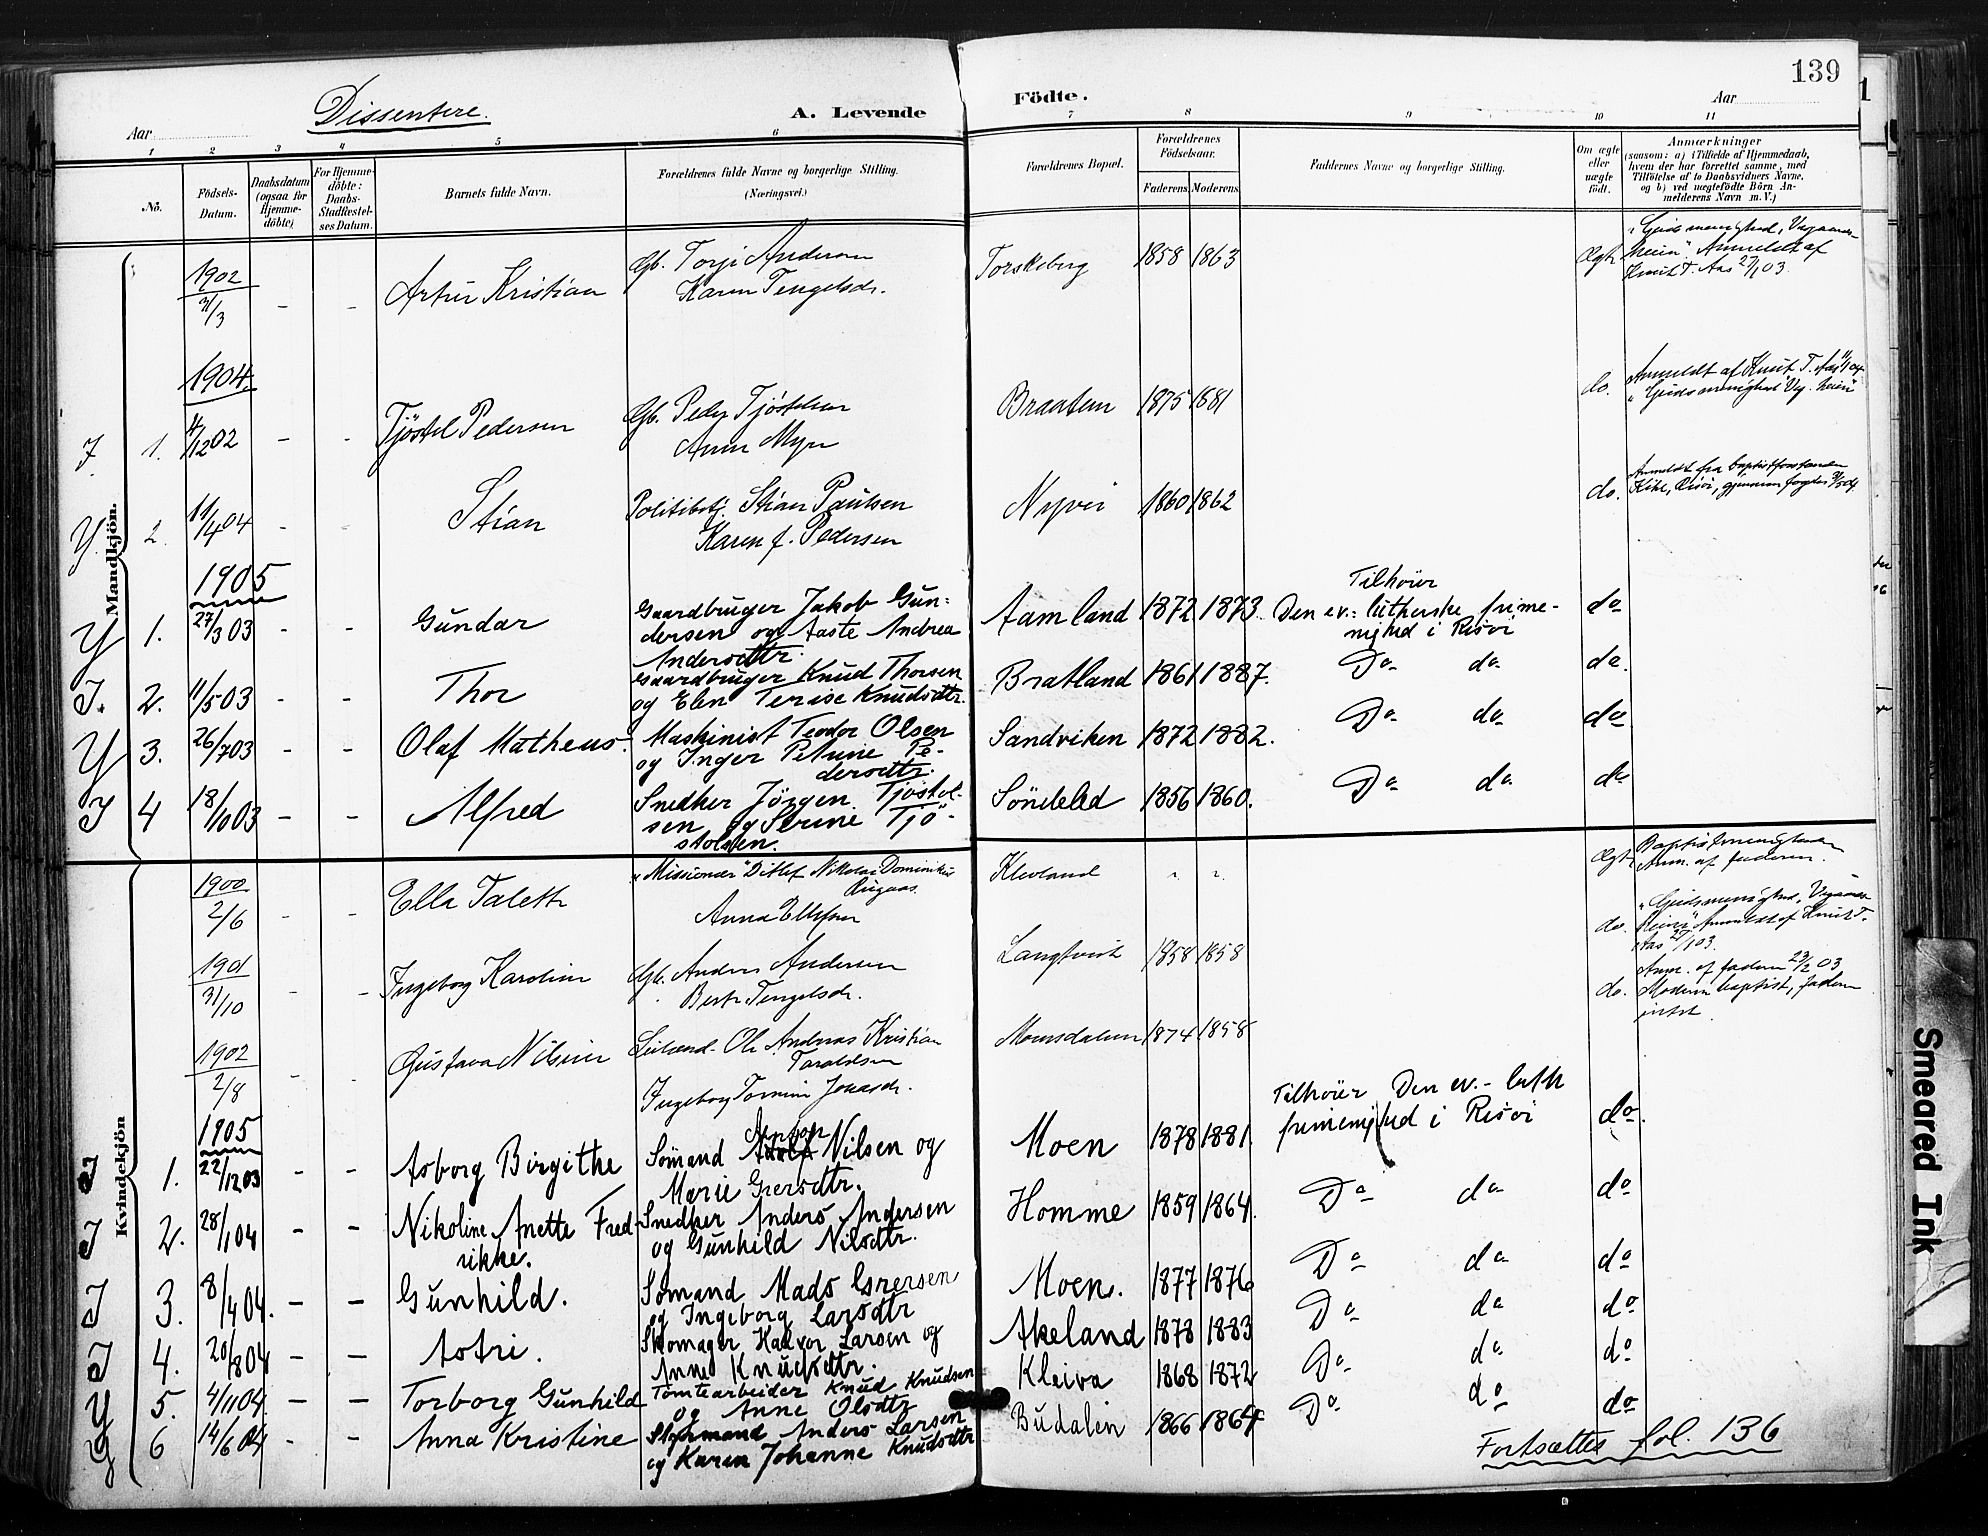 139
Dissentere.
A. Levende
Födte.
Aar
Aar
1 2 3 4 5 6 7 8 9 10 11
Nō.
Födsels-
Datum.
Daabsdatum
(ogsaa for
Hjemme-
döbte)
For Hjemme-
döbte:
Daabs-
Stadfæstel-
ses Datum.
Barnets fulde Navn.
Forældrenes fulde Navne og borgerlige Stilling.
(Næringsvei.)
Forældrenes Bopæl.
Forældrenes
Födselsaar.
Faderens.
Moderens.
Faddernes Navne og borgerlige Stilling.
Om ægte
eller
uægte
födt.
Anmærkninger
(saasom: a) i Tilfælde af Hjemmedaab,
hvem der har forrettet samme, med
Tilföielse af to Daabsvidners Navne,
og b) ved uægtefödte Börn An-
melderens Navn m. V.)
Mandkjön.
1902
- - Artur Kristian Gb. Torje Andersen Torskeberg 1858 1863 Ægte
Karen Tengelsdr.
"Guds menighed, Vegaars-
heien" Anmeldt af
Knut T. Aas 27/1 03.
1904
1. 4/12 02 - - Tjöstel Pedersen Gb. Peder Tjöstelsen Braaten 1875 1881 do.
Anmeldt af Knut T. Aas
"Guds menighed" Veg. heien"
Y. 2. 11/4 04 - - Stian Politibetj. Stian Paulsen Nyvei 1860 1862 do.
Karen f. Pedersen
Anmeldt fra baptistforstander
1905
Y 1. 27/3 03 - - Gundar Gaardbruger Jakob Gun-
dersen og Aaste Andrea
Andersdtr. Aamland 1872 1873 Tilhörer
Den ev.: lutherske frime-
nighed i Risör do
2. 11/5 03 - - Thor Gaardbruger Knud Thorsen
og Elen Terise Knudsdtr. Bratland 1861 1887. Do do do.
Y 3. 26/7 03 - - Olaf Matheus. Maskinist Teodor Olsen
og Inger Petrine Pe-
dersdtr. Sandviken 1872 1882. Do do do
4 18/10 03 - - Alfred Snedker Jörgen Tjöstel-
sen og Serine Tjö-
stolsen. Söndeled 1856 1860. Do do do
Kvindekjön
1900
2/6 - - Ella Talette "Missionær" Ditlef Nikolai Dominikus
Anna Ellefsen Klevland " " Ægte
Baptistmenigheden
Anm. af faderen.
1901
31/10 - - Ingeborg Karoline Gb. Anders Andersen
Berte Tengelsdr. Langtveit 1858 1858 do.
"Guds menighed, Vegaars-
heien" Anmeldt af Knut T.
Aas 27/1 03.
1902
2/8 - - Gustava Nilsine Ole Andreas Kristian
Taraldsen
Ingeborg Tomine Jonasdr. Mowsdalen 1874 1858 do.
Anm. af faderen 23/2 03
Moderen baptist, faderen
intet.
1905
1. 22/12 03 - - Asborg Birgithe Sömand Adolf Nilsen og
Marie Gresrsdtr. Moen 1878 1881. Tilhörer Den ev.- luth
frimenighed i Risör do.
2. 28/1 04 - - Nikoline Anette Fred-
rikke. Snedker Anders Andersen
og Gunhild Nilsdtr. Homme 1859 1864. Do do do
3. 8/4 04. - - Gunhild. Sömand Mads Gresersen
og Ingeborg Larsdtr Moen. 1877 1876 Do do do
4. 20/8 04 - - Astri. Skomager Halvor Larsen og
Anne Knudsdtr. Akeland 1878 1883 Do do do
Y 5. 4/11 04. - - Torborg Gunhild Tomtearbeider Knud Knudsen
og Anne Olsdtr Kleiva 1868 1872 Do do do
6 14/6 04 - - Anna Kristine Anders Larsen
og Karen Johanne Knudsdtr Budalen 1866 1864 Do do do
Fortsættes fol. 136
Smeared Ink